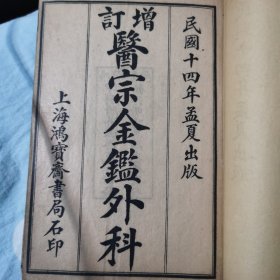 民國十四年孟夏出版
增訂
醫宗金鑑外科
上海鴻寶齋書局石印